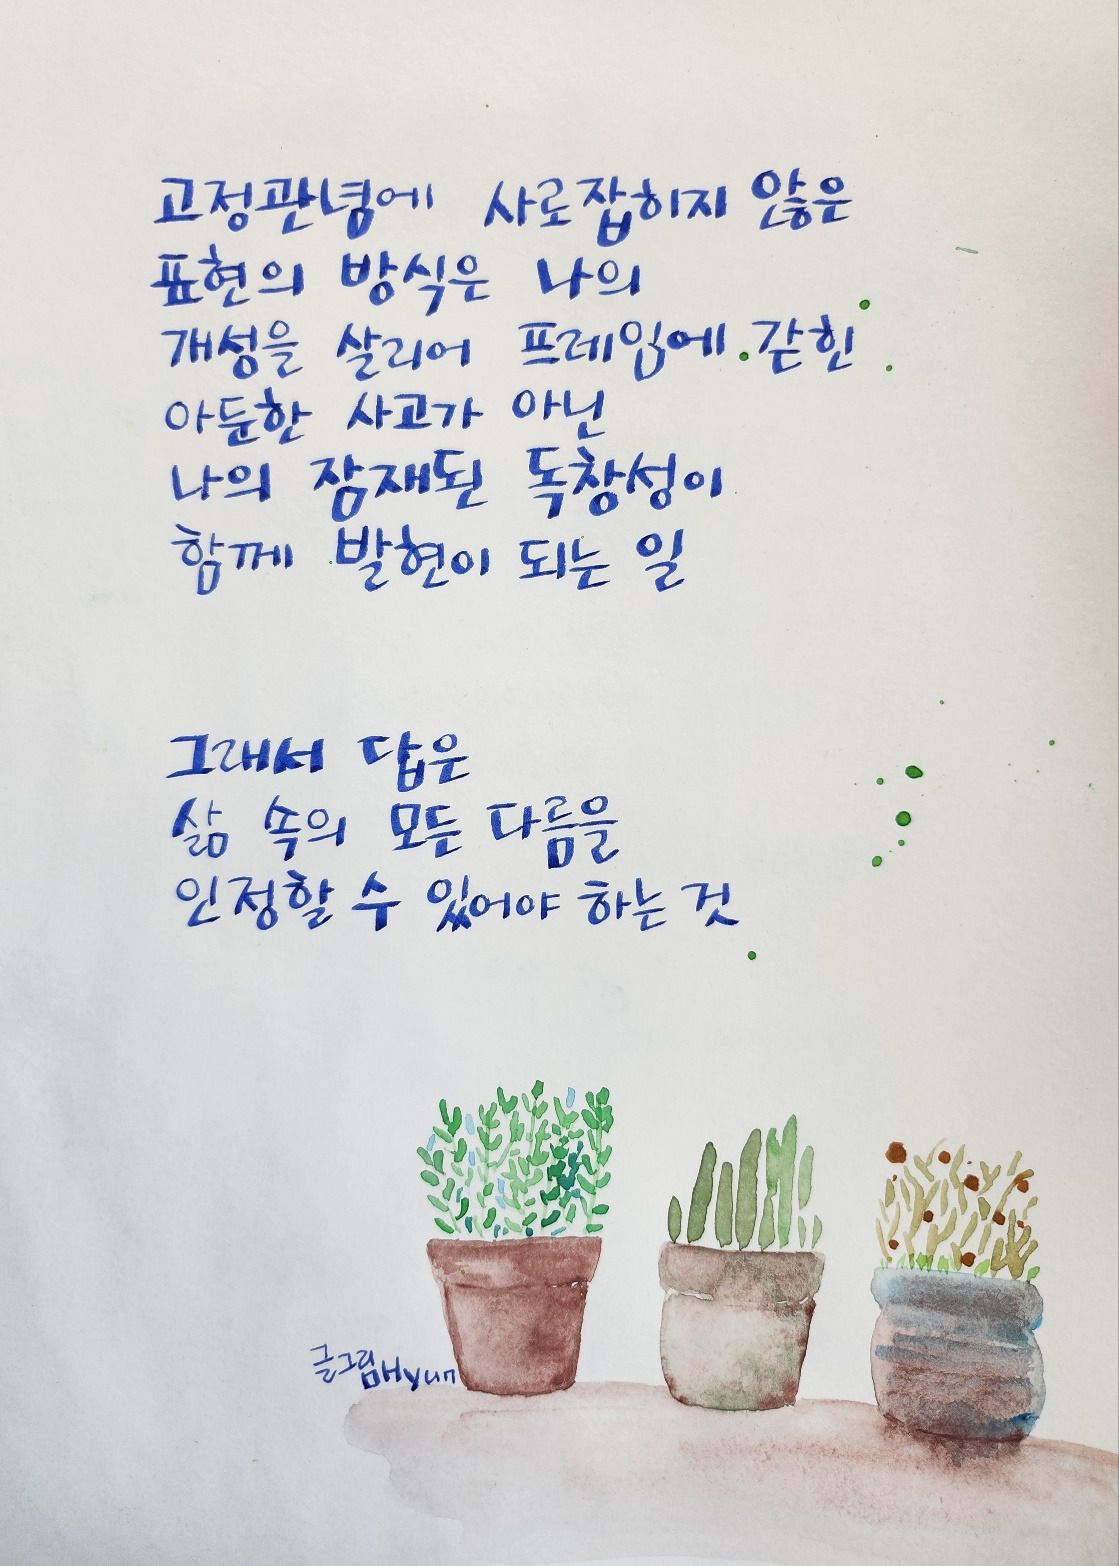 고정관념에 사로잡히지 않은
표현의 방식은 나의
개성을 살리어 프레임에 갇힌
아둔한 사고가 아닌
나의 잠재된 독창성이
함께 발현이 되는 일
그래서 답은
삶 속의 모든 다름을
인정할 수 있어야 하는 것
글그림Hyun